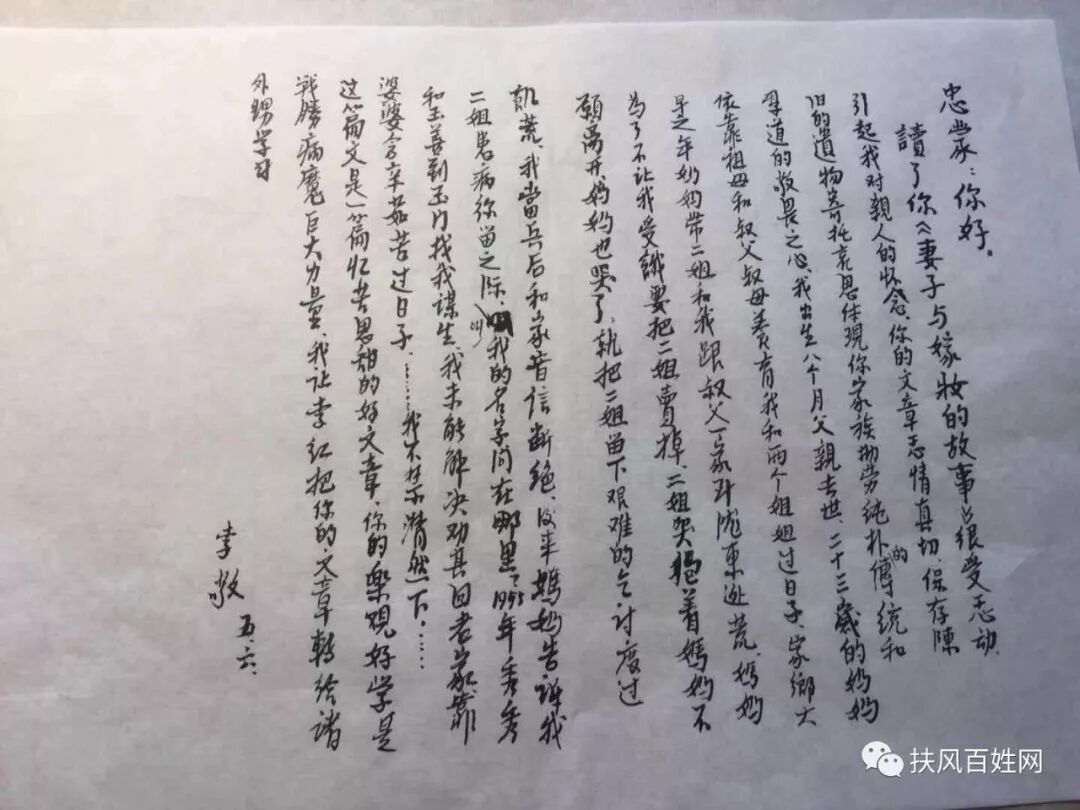 忠承：你好。
讀了你《妻子与嫁妆的故事》很受感动、
引起我对親人的怀念、你的文章感情真切、保存陳
旧的遗物寄托哀思体現你家族勤劳纯朴的傅统和
孝道的敬畏之心、我出生八个月父親去世、二十三歲的妈妈
依靠祖母和叔父叔母养育我和两个姐姐过日子、家鄉大
旱之年妈妈带二姐和我跟叔父一家到陇東逃荒、媽妈
为了不让我受餓要把二姐賣掉、二姐哭抱着媽妈不
願离开、妈妈也哭了、就把二姐留下艰难的乞讨度过
飢荒、我當兵后和家音信断绝、後来媽妈告訴我
二姐患病弥留之际、叫我的名字问在哪里、1955年秀秀
和玉善到玉门找我谋生、我未能解决劝其回老家靠
婆婆含辛茹苦过日子、……我不禁潸然下、……
这篇文是一篇忆苦思甜的好文章、你的樂观好学是
戰勝病魔巨大力量、我让李红把你的文章轉给诸
外甥学习
李敬
五.六.
扶风百姓网